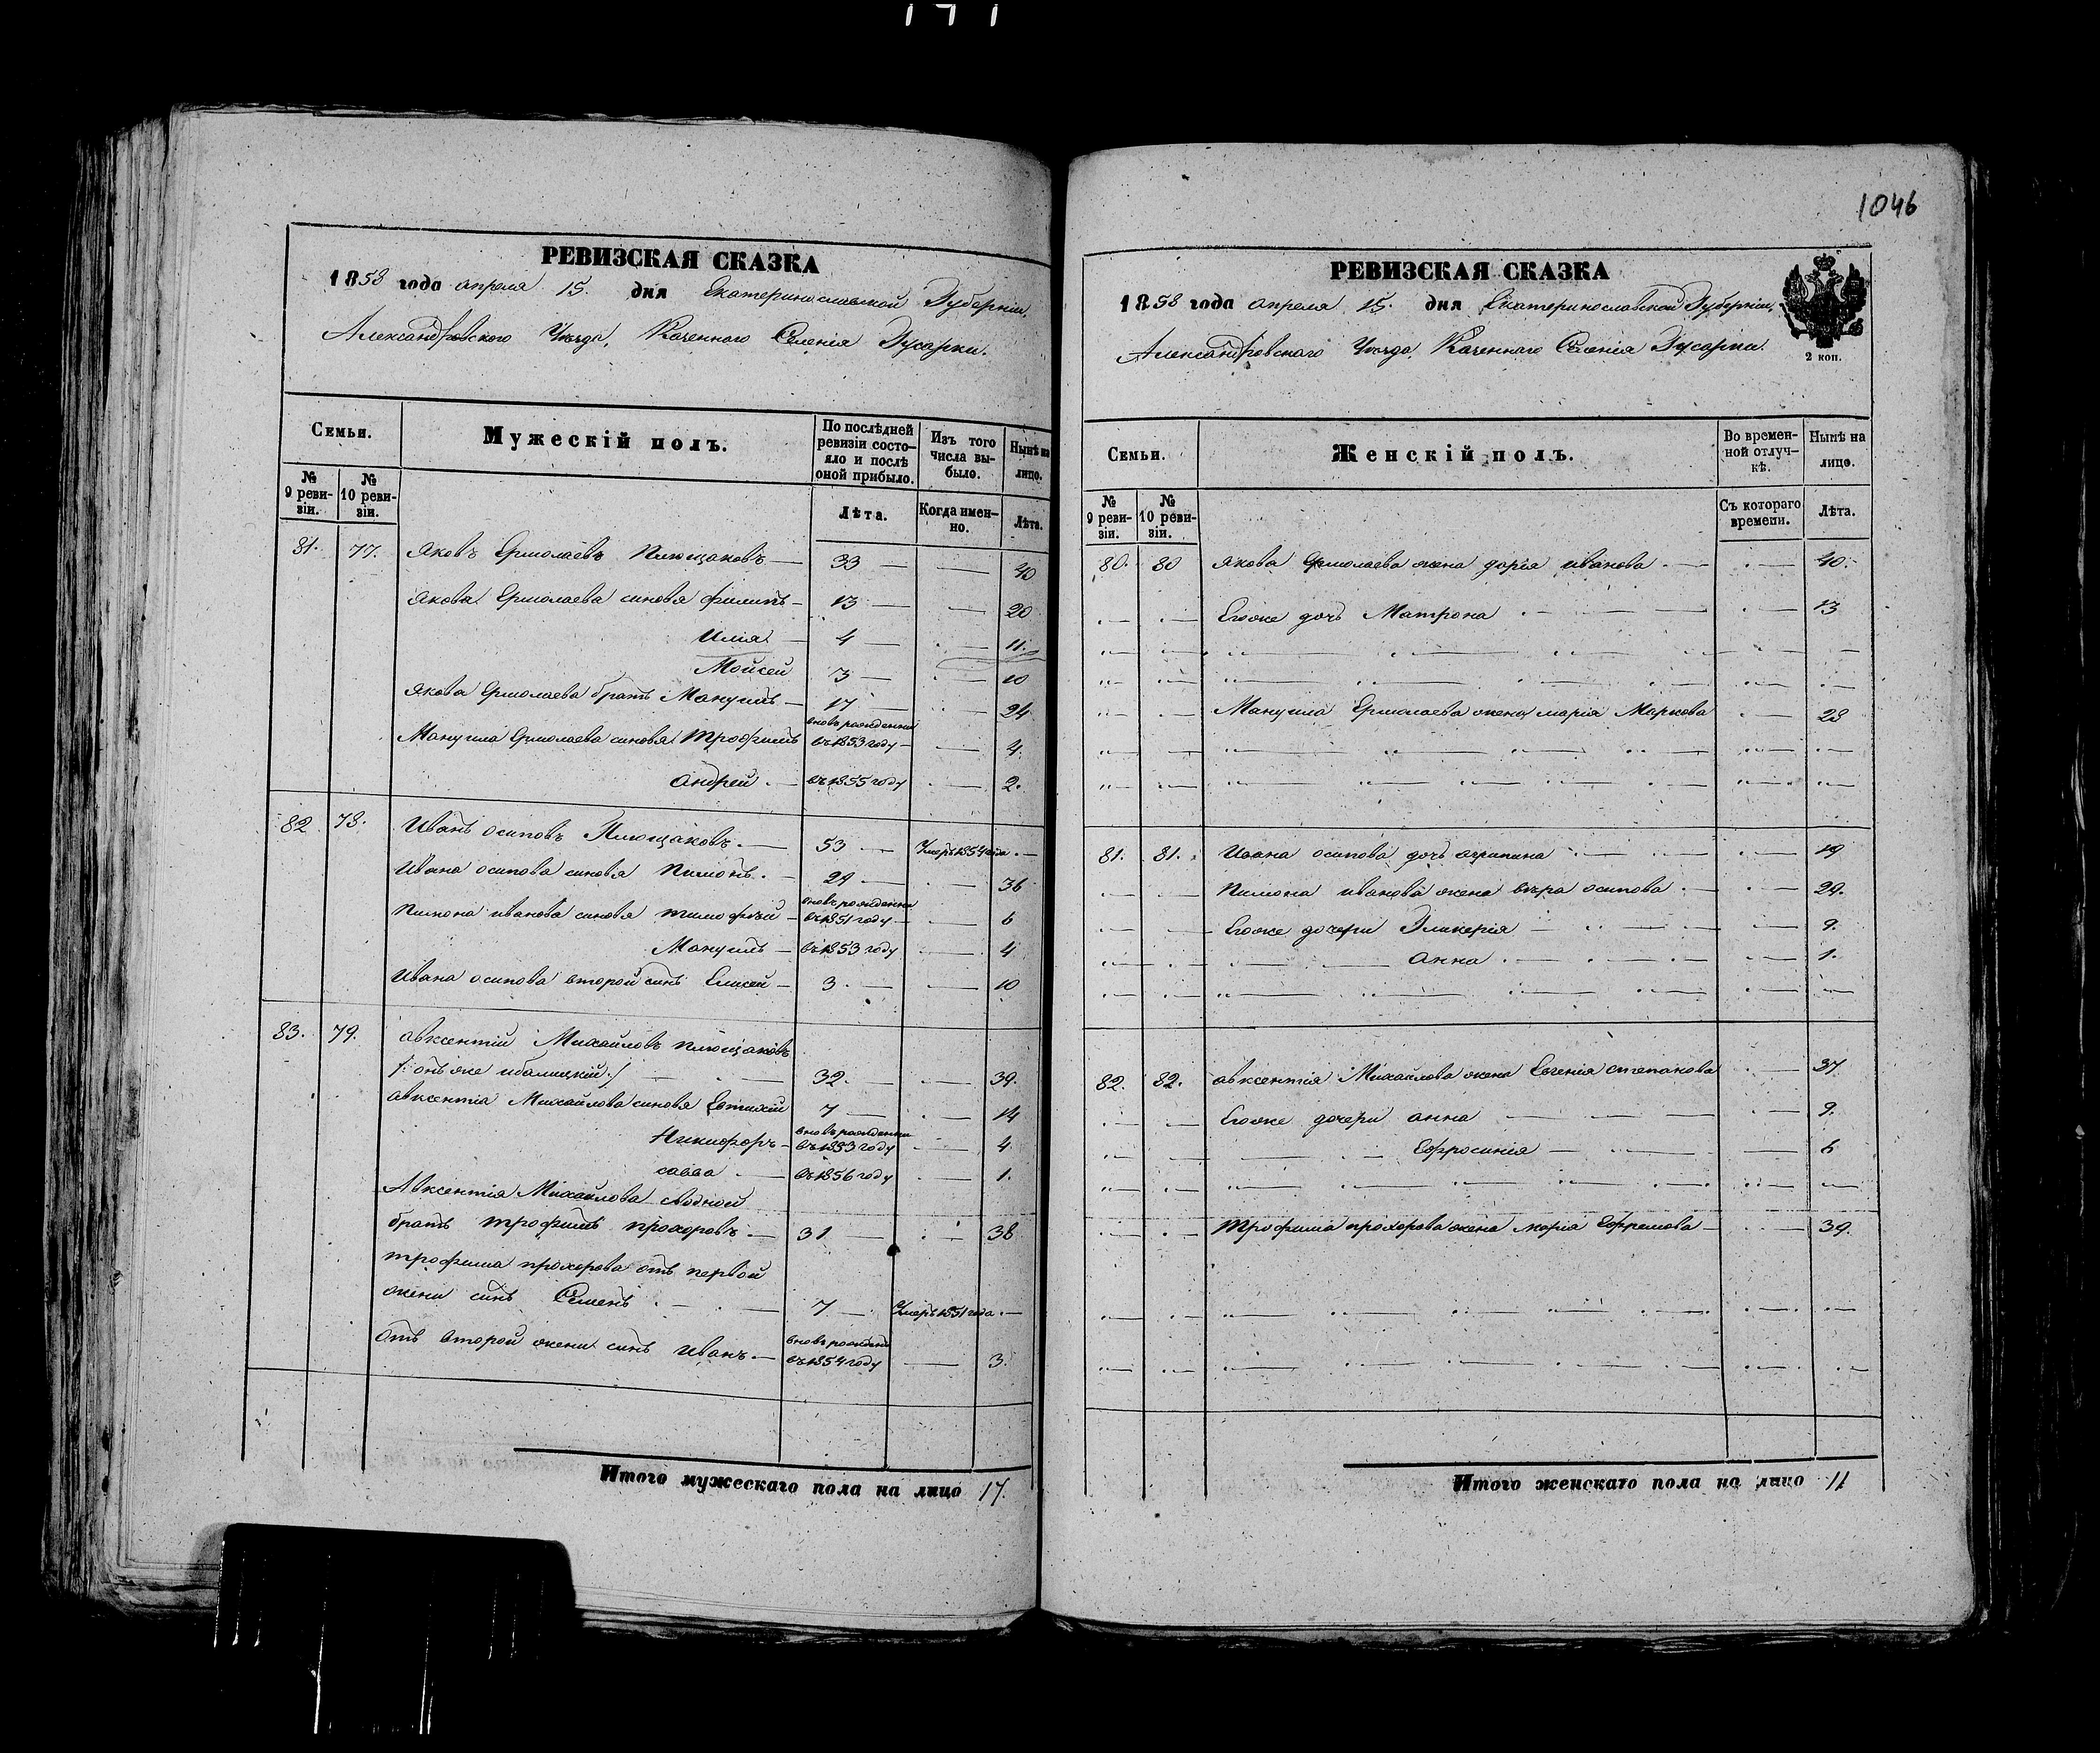 1046
РЕВИЗСКАЯ СКАЗКА
1858 года апреля 15. дня Екатеринославской Губерніи,
Александровского Уезда, Казенного Селенія Гусарки.
Семьи.
Мужескій полъ.
По послѣдней ревизіи состояло и послѣ оной прибыло.
Изъ того числа выбыло.
Нынѣ на лицо.
№ 9 ревизіи.
№ 10 ревизіи.
Лѣта.
Когда именно.
Лѣта.
81. 77. Яковъ Ермолаевъ Плющаковъ — 33 — — 40
Якова Ермолаева сыновя Филипъ — 13 — — 20
Илія — 4 — — 11.
Мойсей 3 — — 10
Якова Ермолаева братъ Мануилъ — 17 — — 24
Мануила Ермолаева сыновя Трофимъ вновь рожденни въ 1853 году — — 4.
Андрей — въ 1855 году — 2.
82. 78. Иванъ Осиповъ Плющаковъ — 53 — Умеръ 1854 года —
Ивана Осипова сыновя Пимонъ — 29 — — 36
Пимона Иванова сыновя Тимофѣй — вновь рожденни въ 1851 году — — 6
Мануилъ — въ 1853 году — 4
Ивана Осипова второй сынъ Елисей — 3 — — 10
83. 79. Авксентій Михайловъ Плющаковъ
/: онъ же Ибалицкій :/ — 32. — — 39.
Авксентія Михайлова сыновя Евтихій 7 — — 14
Никифоръ — вновь рожденни въ 1853 году — 4.
Савва — въ 1856 году — 1.
Авксентія Михайлова сводной
братъ Трофимъ Прохоровъ — 31 — — 38
Трофима Прохорова отъ первой
жени сынъ Семенъ — 7 — Умеръ 1851 года —
Отъ второй жени сынъ Иванъ — вновь рожденъ въ 1854 году — 3.
Итого мужескаго пола на лицо 17.
РЕВИЗСКАЯ СКАЗКА
1858 года апреля 15. дня Екатеринославской Губерніи,
Александровского Уезда, Казенного Селенія Гусарки.
2 коп.
Семьи.
Женскій полъ.
Во временной отлучкѣ.
Нынѣ на лицо.
№ 9 ревизіи.
№ 10 ревизіи.
Съ котораго времени.
Лѣта.
80. 80 Якова Ермолаева жена Дарія Иванова — — 40.
Егоже дочь Матрона — — 13
Мануила Ермолаева жена Марія Маркова — 28
81. 81. Ивана Осипова дочь Агрипина — — 19
Пимона Иванова жена Вѣра Осипова — — 29.
Егоже дочери Гликерія — — 9.
Анна — — 1.
82. 82. Авксентія Михайлова жена Евгенія Степанова — 37
Егоже дочери Анна — — 9.
Ефросинія — — 6
Трофима Прохорова жена Марія Ефремова — — 39.
Итого женскаго пола на лицо 11